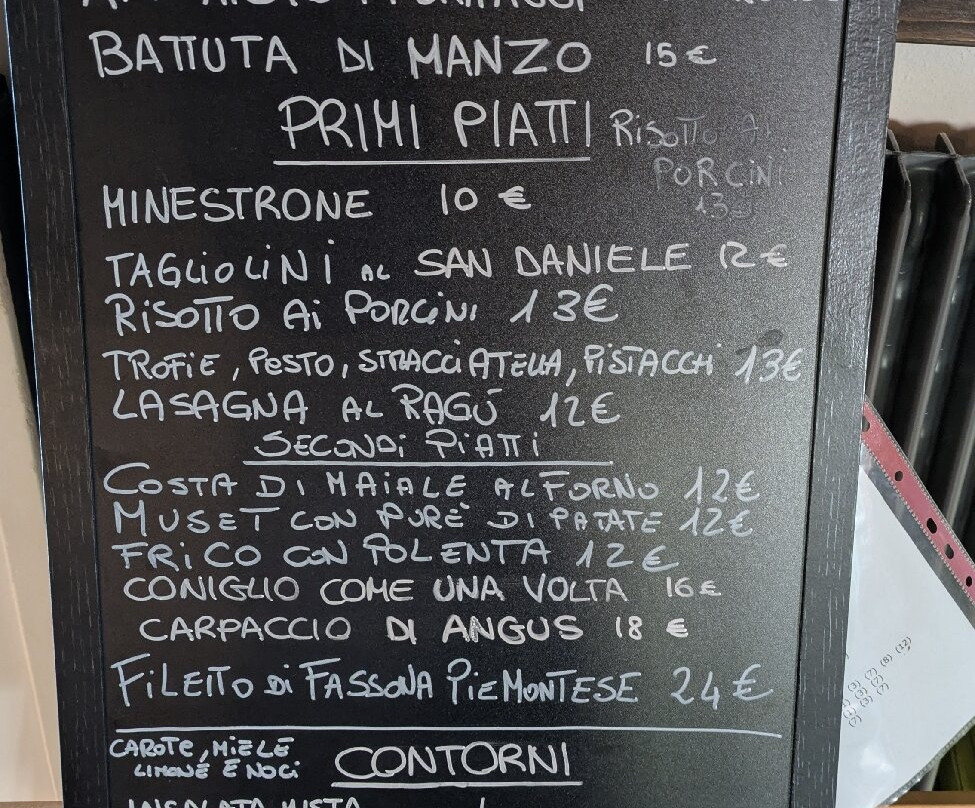 BATTUTA DI MANZO 15 €
PRIMI PIATTI
RISOTTO AI
PORCINI
13
MINESTRONE 10 €
TAGLIOLINI AL SAN DANIELE 12 €
RISOTTO AI PORCINI 13€
TROFIE, PESTO, STRACCIATELLA, PISTACCHI 13€
LASAGNA AL RAGÚ 12€
SECONDI PIATTI
COSTA DI MAIALE AL FORNO 12€
MUSET CON PURÈ DI PATATE 12€
FRICO CON POLENTA 12€
CONIGLIO COME UNA VOLTA 16€
CARPACCIO DI ANGUS 18 €
FILETTO DI FASSONA PIEMONTESE 24€
CAROTE, MIELE
LIMONE E NOCI
CONTORNI
INSALATA MISTA